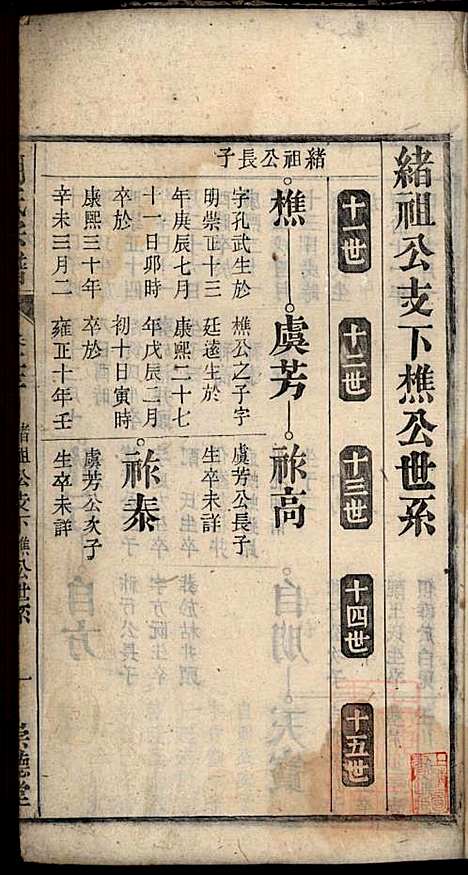 緒祖公支下樵公世系
十一世 十二世 十三世 十四世 十五世
緒祖公長子
樵 虞芳 祚高
字孔武生於
明崇正十三
年庚辰七月
十一日卯時
卒於
康熙三十年
辛未三月二
樵公之子字
廷遠生於
康熙二十七
年戊辰二月
初十日寅時
卒於
雍正十年壬
虞芳公長子
生卒未詳
祚泰
虞芳公次子
生卒未詳
緒祖公支下樵公世系 一 崇德堂